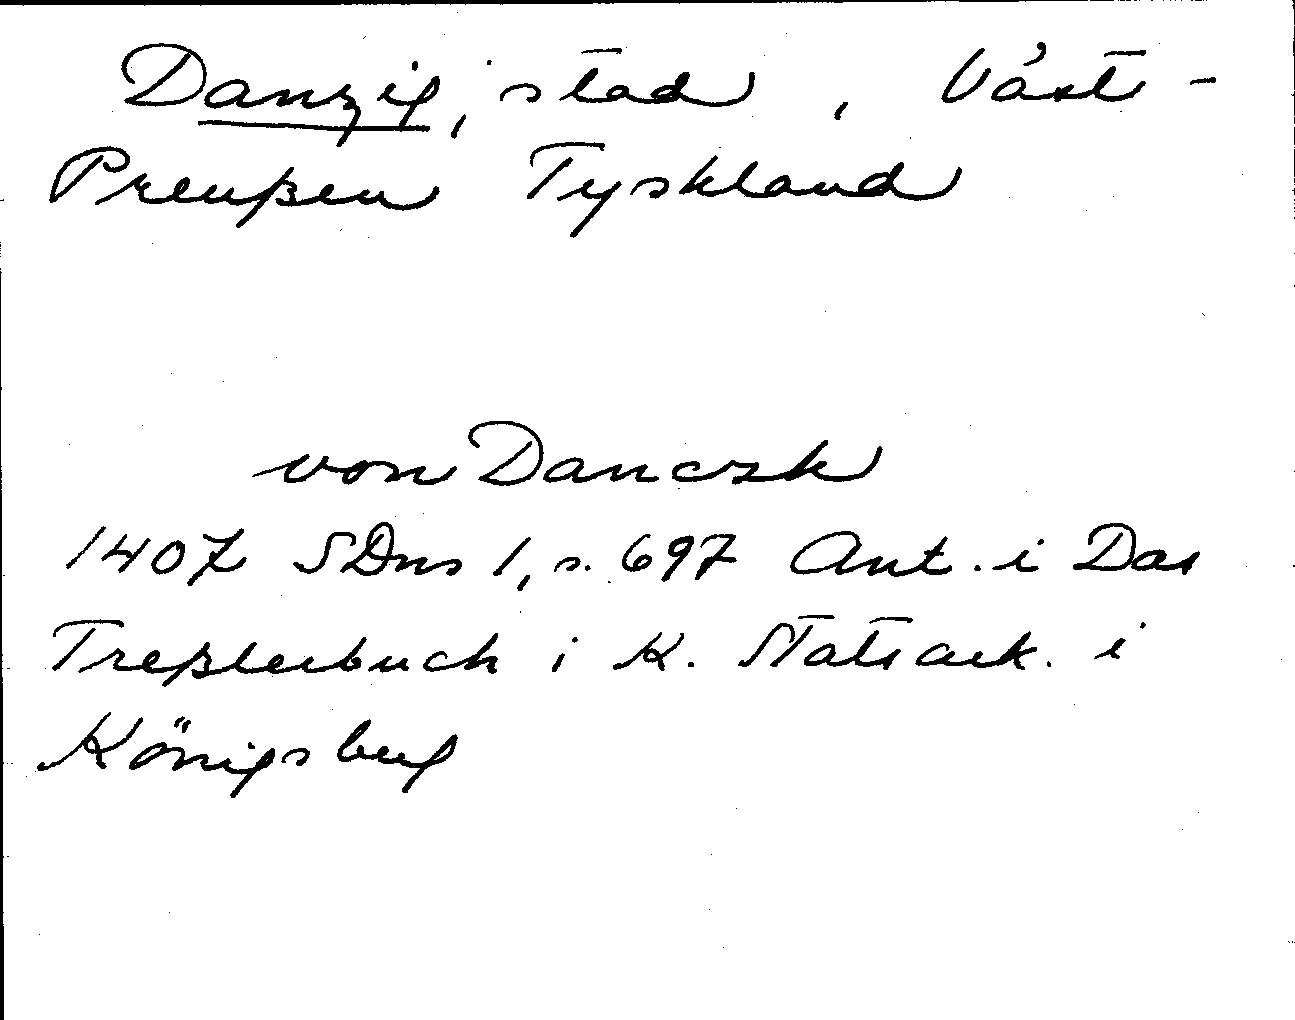 Danzig, stad, Väst-
Preußen Tyskland
von Danczk
1407 SDns 1, s. 697 Ant. i Das
Treßlerbuch i K. Statsark. i
Königsberg